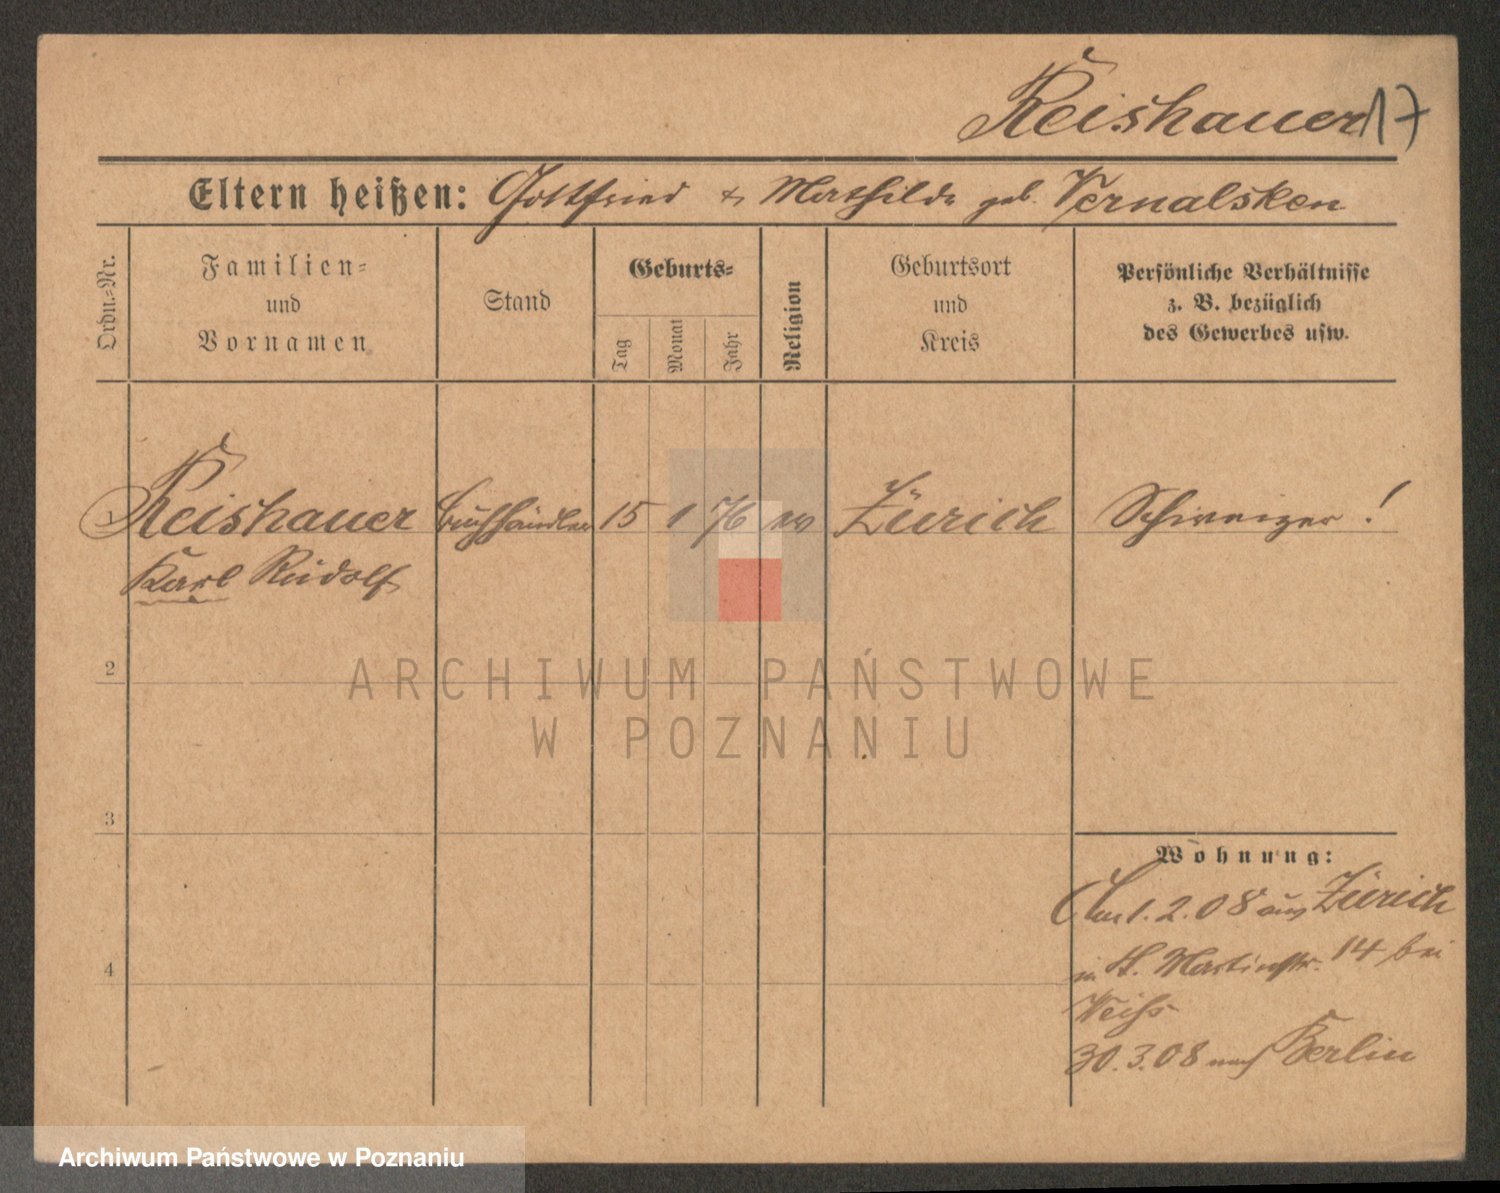 Reishauer 17
Eltern heißen: Gottfried & Mathilde geb. Vernalsken
Ordn.-Nr.
Familien-
und
Vornamen
Stand
Geburts-
Tag
Monat
Jahr
Religion
Geburtsort
und
Kreis
Persönliche Verhältnisse
z. B. bezüglich
des Gewerbes usw.
1 Reishauer Buchhändler 15 1 76 ev Zürich Schweizer!
Karl Rudolf
2
3
4
Wohnung:
1.2.08 aus Zürich
in St. Martinstr. 14 bei
Weiß
30.3.08 nach Berlin
ARCHIWUM PAŃSTWOWE
W POZNANIU
Archiwum Państwowe w Poznaniu